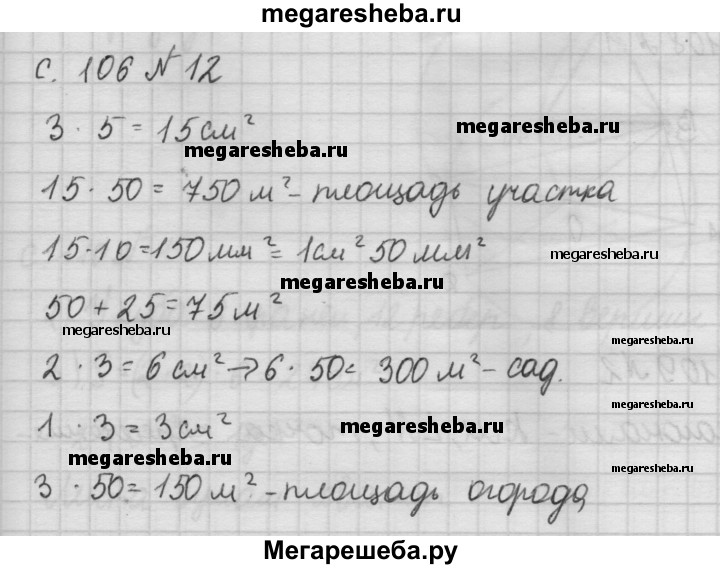 megaresheba.ru
с. 106 № 12
3 · 5 = 15 см²
megaresheba.ru
megaresheba.ru
15 · 50 = 750 м² - площадь участка
15 · 10 = 150 мм² = 1 см² 50 мм²
megaresheba.ru
50 + 25 = 75 м²
megaresheba.ru
megaresheba.ru
2 · 3 = 6 см² → 6 · 50 = 300 м² - сад.
1 · 3 = 3 см²
megaresheba.ru
megaresheba.ru
megaresheba.ru
3 · 50 = 150 м² - площадь огорода
Мегарешеба.ру